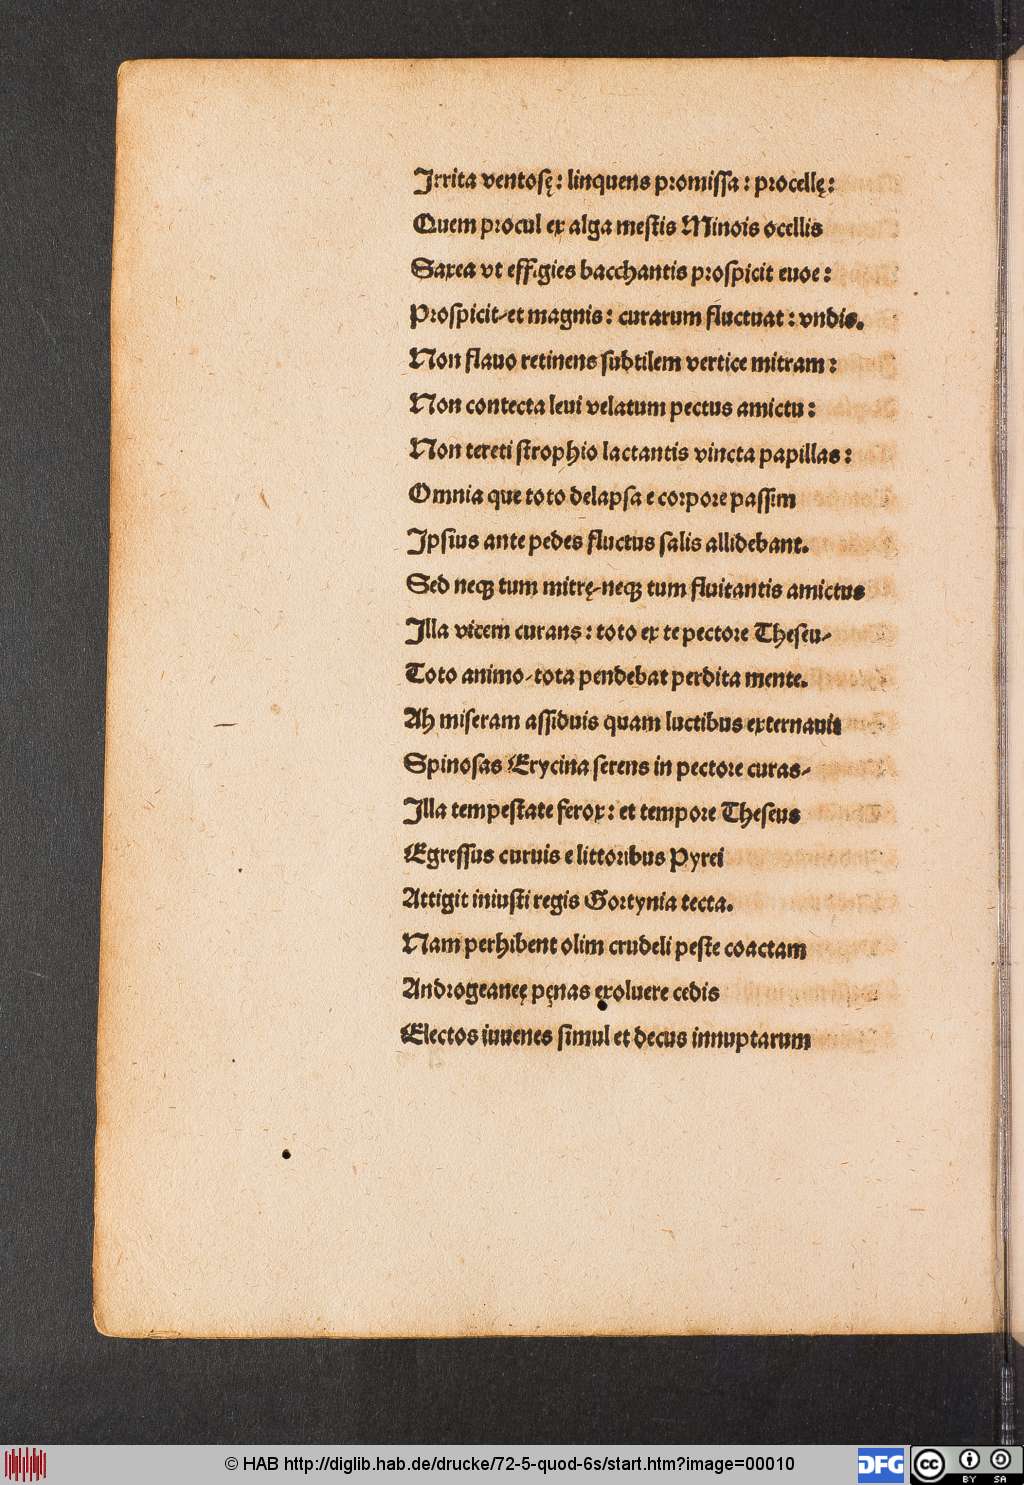 Irrita ventosę: linquens promissa: procellę:
Quem procul ex alga mestis Minois ocellis
Saxea vt effigies bacchantis prospicit euoe:
Prospicit-et magnis: curarum fluctuat: vndis.
Non flauo retinens subtilem vertice mitram:
Non contecta leui velatum pectus amictu:
Non tereti strophio lactantis vincta papillas:
Omnia que toto delapsa e corpore passim
Ipsius ante pedes fluctus salis allidebant.
Sed neqꝫ tum mitrę-neqꝫ tum fluitantis amictus
Illa vicem curans: toto ex te pectore Theseu-
Toto animo-tota pendebat perdita mente.
Ah miseram assiduis quam luctibus externauit
Spinosas Erycina serens in pectore curas-
Illa tempestate ferox: et tempore Theseus
Egressus curuis e littoribus Pyrei
Attigit iniusti regis Gortynia tecta.
Nam perhibent olim crudeli peste coactam
Androgeaneę pęnas exoluere cedis
Electos iuuenes simul et decus innuptarum
© HAB http://diglib.hab.de/drucke/72-5-quod-6s/start.htm?image=00010
DFG
cc BY SA